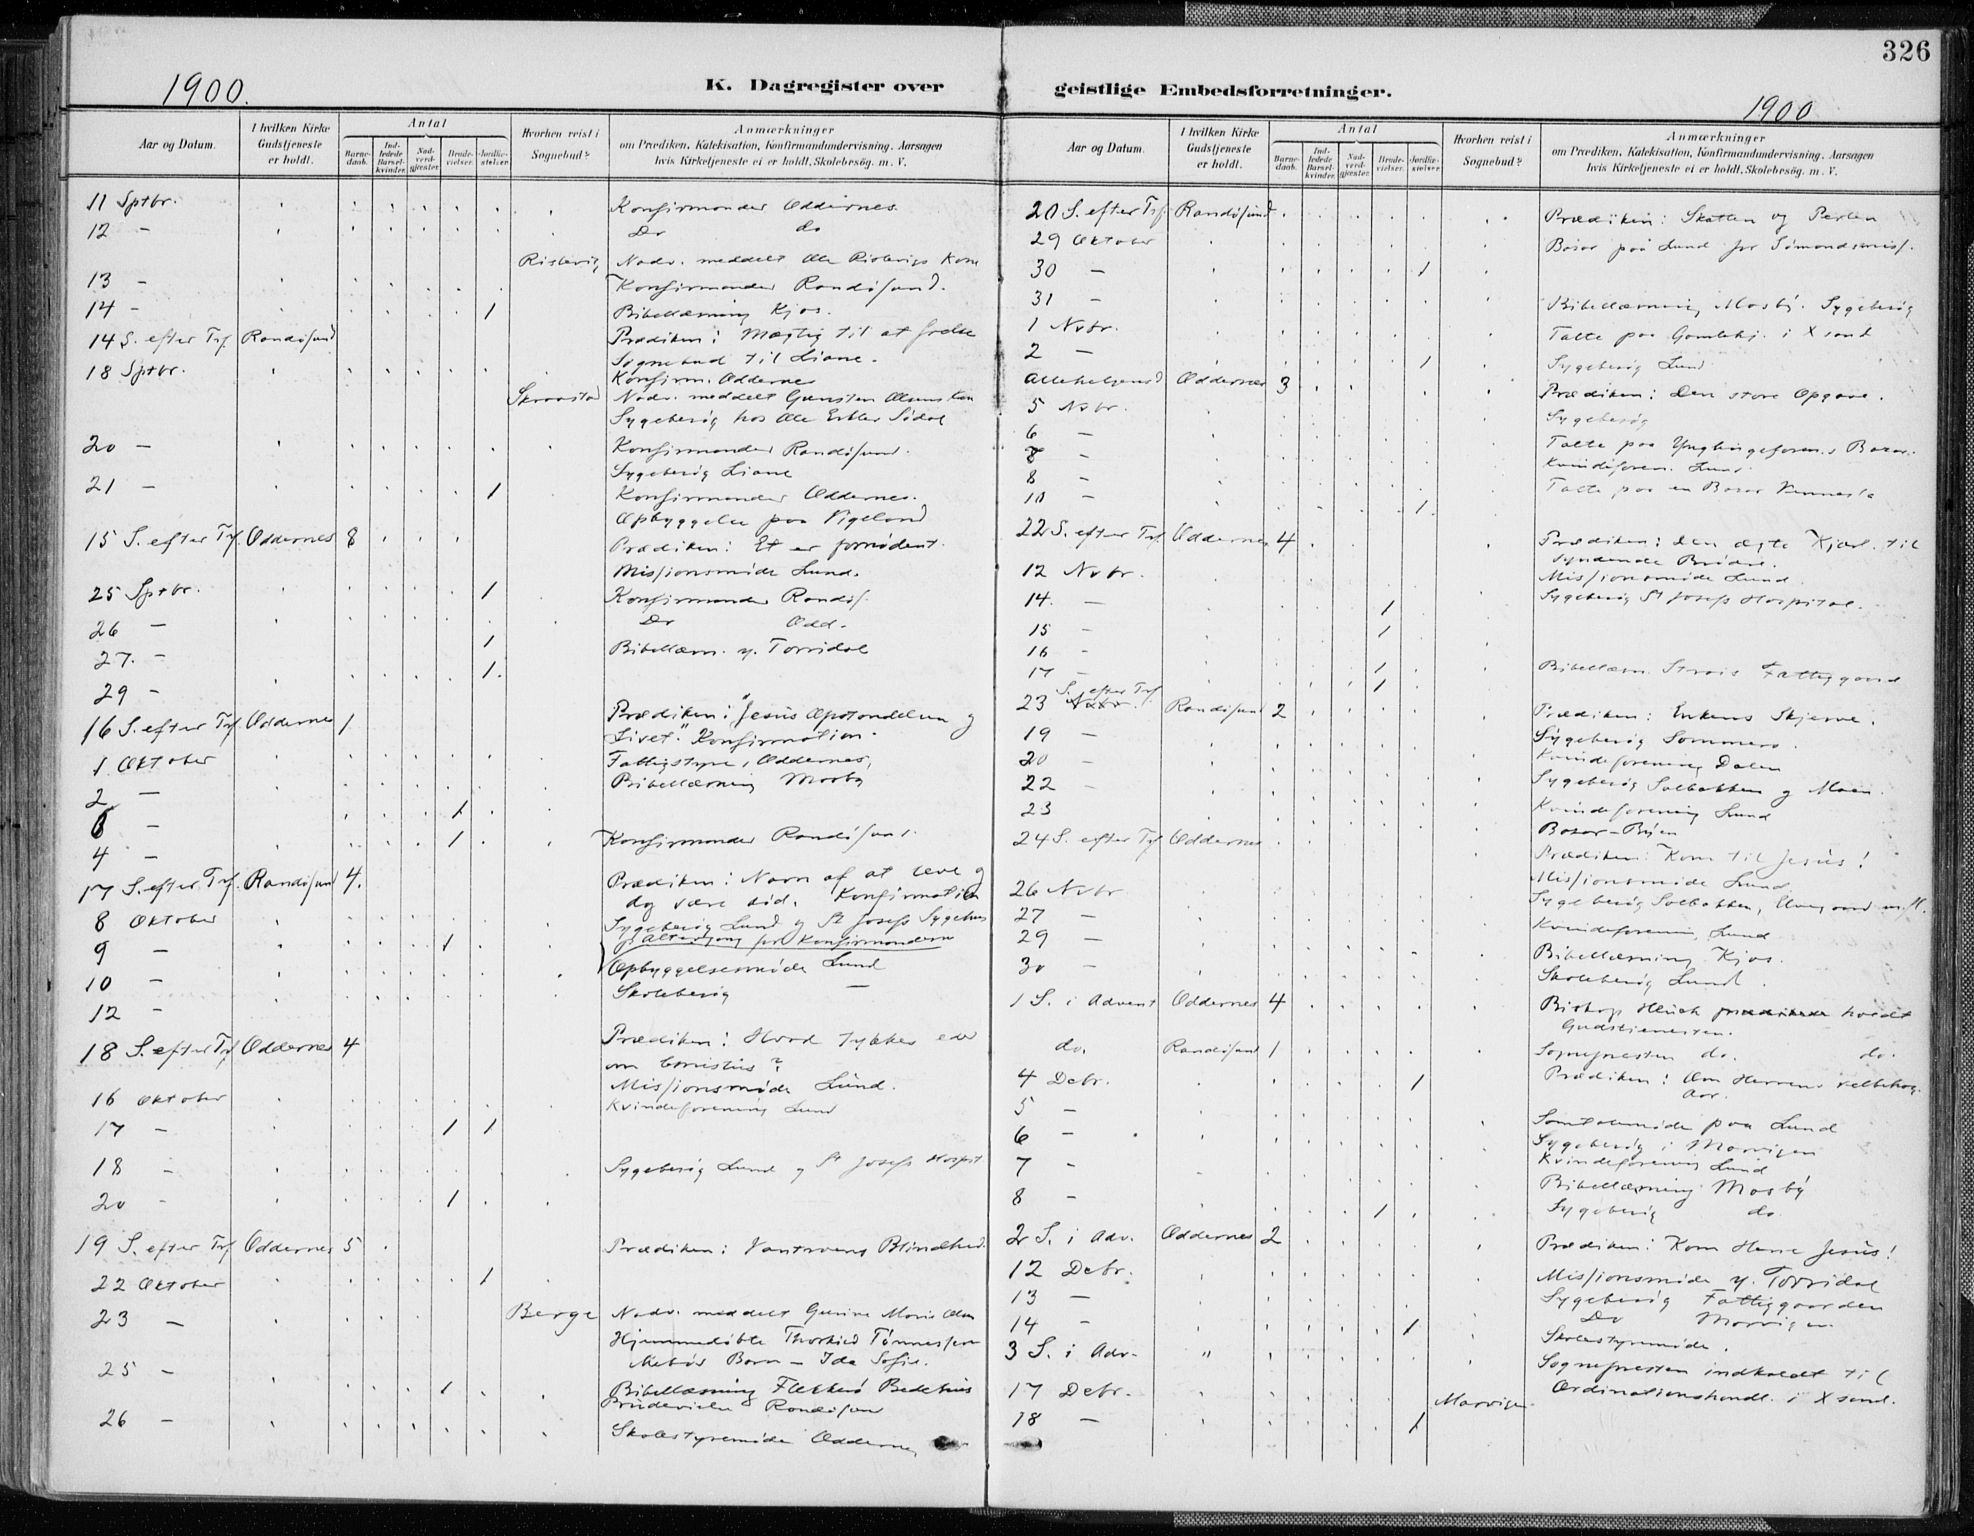 326
1900.
K. Dagregister over
geistlige Embedsforretninger.
1900
Aar og Datum.
I hvilken Kirke Gudstjeneste er holdt.
Antal
Barne-daab.
Ind-ledede Barsel-kvinder.
Nad-verd-gjester.
Brude-vielser.
Jordfæ-stelser.
Hvorhen reist i Sognebud?
Anmærkninger
om Prædiken, Katekisation, Konfirmandundervisning. Aarsagen
hvis Kirketjeneste ei er holdt. Skolebesög. m. V.
11 Sptbr. Konfirmander Oddernes.
12 — Do do
Risbevig Nadv. meddelt Ole Kone
13 — Konfirmander Randøsund.
14 — 1 Bibellæsning Kjos.
14 S. efter Trf. Randøsund Prædiken: Mægtig til at frelse
Sognebud til Liane.
18 Sptbr. Konfirm. Oddernes
Nadv. meddelt
Sygebesøg hos Ole
20 — Konfirmander Randøsund.
Sygebesøg Liane
21 — 1 Konfirmander Oddernes.
Opbyggelse paa Vigeland
15 S. efter Trf. Oddernes 8 Prædiken: Et er fornødent.
Missionsmøde Lund.
25 Sptbr. 1 Konfirmander Randøs.
26 — Do Odd.
27. — 1 Bibellæsn. y. Torridal
29 — 1.
16 S. efter Trf. Oddernes 1 Prædiken: "Jesus Opstandelsen og
Livet." Konfirmation.
1 Oktober Fattigstyre, Oddernes,
2 — Bibellæsning Mosby
6 — 1
4 — 1 Konfirmander Randøsund.
17 S. efter Trf. Randøsund 4. Prædiken: Navn af at leve og
dog være død. Konfirmation
8 Oktober Sygebesøg Lund og St Josefs Sygehus
9 — 1 Altergang for Konfirmanderne
10 — Opbyggelsesmøde Lund
12 — Skolebesøg —
18 S. efter Trf Oddernes 4 Prædiken: Hvad tykkes eder
om Christus?
Missionsmøde Lund.
16 Oktober Kvindeforening Lund
17 — 1 1
18 — Sygebesøg Lund og St Josefs Hospit
20 — 1
19 S. efter Trf Oddernes 5 Prædiken: Vantroens Blindhed.
22 Oktober 1
23 — Berge Nadv. meddelt Marie
Hjemmedøbte Tønnessen
Barn — Ida Sofie.
25 — 1 Bibellæsning Flekkerø Bedehus
Brudevielse Randøsund
26 — Skolestyremøde Oddernes
Aar og Datum.
I hvilken Kirke Gudstjeneste er holdt.
Antal
Barne-daab.
Ind-ledede Barsel-kvinder.
Nad-verd-gjester.
Brude-vielser.
Jordfæ-stelser.
Hvorhen reist i Sognebud?
Anmærkninger
om Prædiken, Katekisation, Konfirmandundervisning. Aarsagen
hvis Kirketjeneste ei er holdt. Skolebesög. m. V.
20 S. efter Trf Randøsund Prædiken: Skatten og Perlen
29 Oktober Basar paa Lund for
30 — 1
31 — Bibellæsning Mosby. Sygebesøg
1 Nvbr. Talte paa i X sand
2 — 1 Sygebesøg Lund
Allehelgensd Oddernes 3 Prædiken: Den store Opgave.
5 Nvbr. Sygebesøg
6 — Talte paa Ynglingeforen.s Basar.
8 — Kvindeforen. Lund
8 — Talte paa en Basar Vennesla
10 — 1
22 S. efter Trf. Oddernes 4 Prædiken: Den ægte Kjærl. til
syndende Brødre.
12 Nvbr. Missionsmøde Lund.
14. — 1 Sygebesøg St Josefs Hospital.
15 — 1
16 —
17 — 1 Bibellæsn. Strais Fattiggaard
23 S. efter Trf Randøsund 2 Prædiken: Enkens Skjærve.
19 — Sygebesøg
20 — Kvindeforening Dalen
22 — Sygebesøg Solbakken og Moen.
23 Kvindeforening Lund
Basar - Byen
24 S. efter Trf Oddernes Prædiken: Kom til Jesus!
Missionsmøde Lund
26 Nvbr Sygebesøg Solbakken, m. fl.
27 — Kvindeforening Lund
29 — Bibellæsning Kjos.
30 — Skolebesøg Lund.
1 S. i Advent Oddernes 4 Biskop Heuch prædikede holdt
Gudstjenesten.
do. Randøsund 1 Sognepresten do. do.
4 Debr. 1 Prædiken: Om Herrens velbehag.
Aar.
5 —
6 — Samtalemøde paa Lund
Sygebesøg i Marvigen
7 — Kvindeforening Lund
8 — 1 Bibellæsning Mosby
Sygebesøg do
2 S. i Adv. Oddernes 2 Prædiken: Kom Herre Jesus!
12 Debr. Missionsmøde y. Torridal
13 — Sygebesøg Fattiggaarden
14 — 1 Do Marvigen.
Skolestyremøde.
3 S. i Adv. " Sognepresten indkaldt til
17 Debr. Marvigen Ordinationshandl. i X sand.
18 — 1